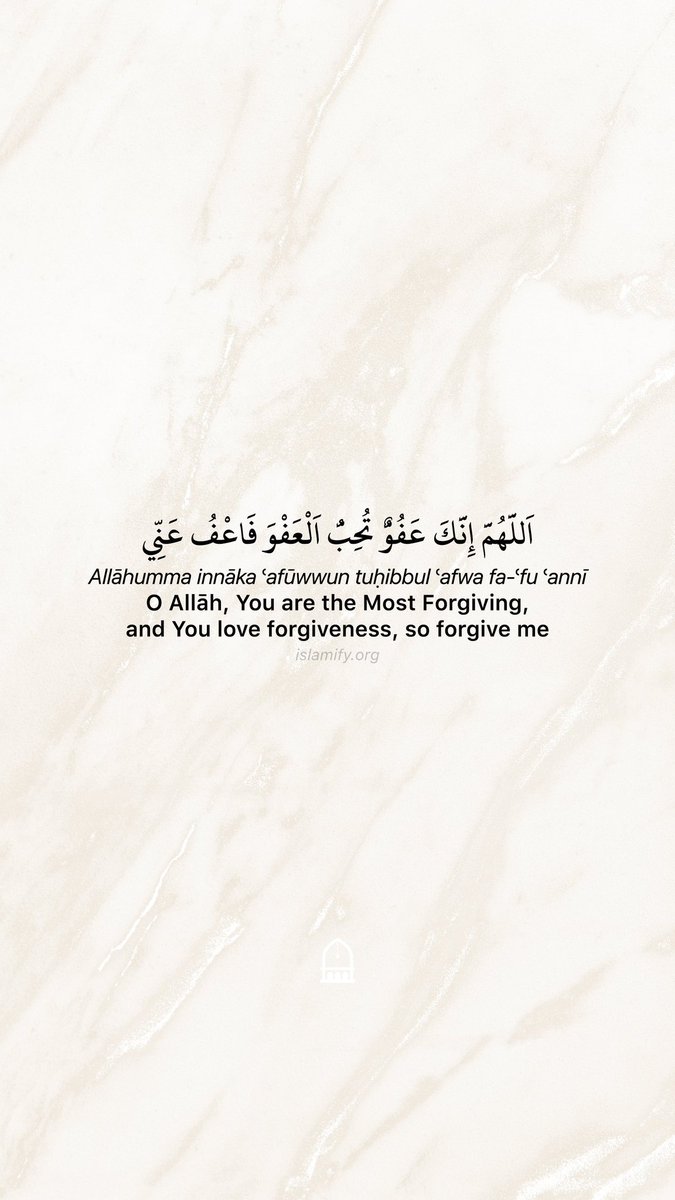 اَللّٰهُمَّ إِنَّكَ عَفُوٌّ تُحِبُّ اَلْعَفْوَ فَاعْفُ عَنِّي
Allāhumma innāka ʿafūwwun tuḥibbul ʿafwa fa-ʿfu ʿannī
O Allāh, You are the Most Forgiving,
and You love forgiveness, so forgive me
islamify.org